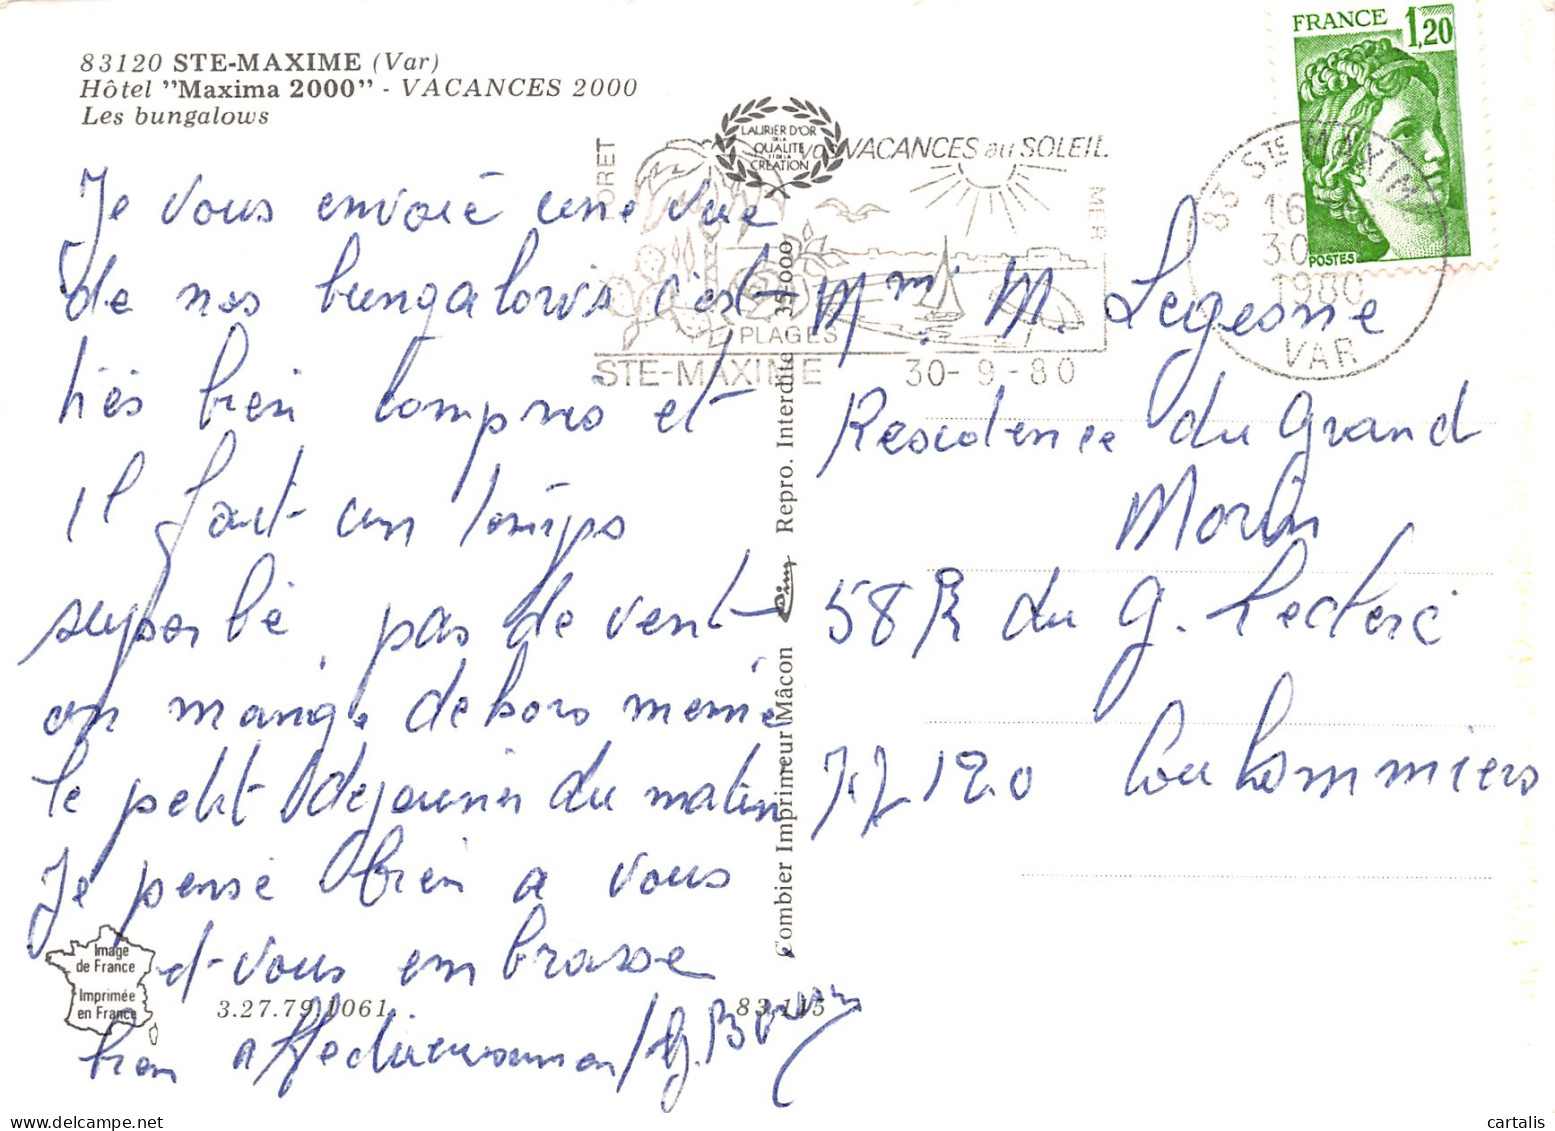 83120 STE-MAXIME (Var)
Hôtel "Maxima 2000" - VACANCES 2000
Les bungalows
Je vous envoie une vue
de nos bungalows c'est
très bien compris et
il fait un temps
superbe, pas de vent
on mange dehors meme
le petit dejeuner du matin
Je pense bien a vous
et vous embrasse
bien affectueusement
Image
de France
Imprimée
en France
3.27.79.1061
83.115
Combier Imprimeur Mâcon
Repro. Interdite 35.000
LAURIER D'OR
DE LA
QUALITÉ
ET DE LA
CRÉATION
VOS VACANCES au SOLEIL
FORET
MER
PLAGES
STE-MAXIME 30-9-80
FRANCE 1,20
POSTES
83 STE MAXIME
16
30
1980
VAR
Mme M. Legesne
Residence du Grand
Morin
58 R du G. Leclerc
77120 Coulommiers
cartalis